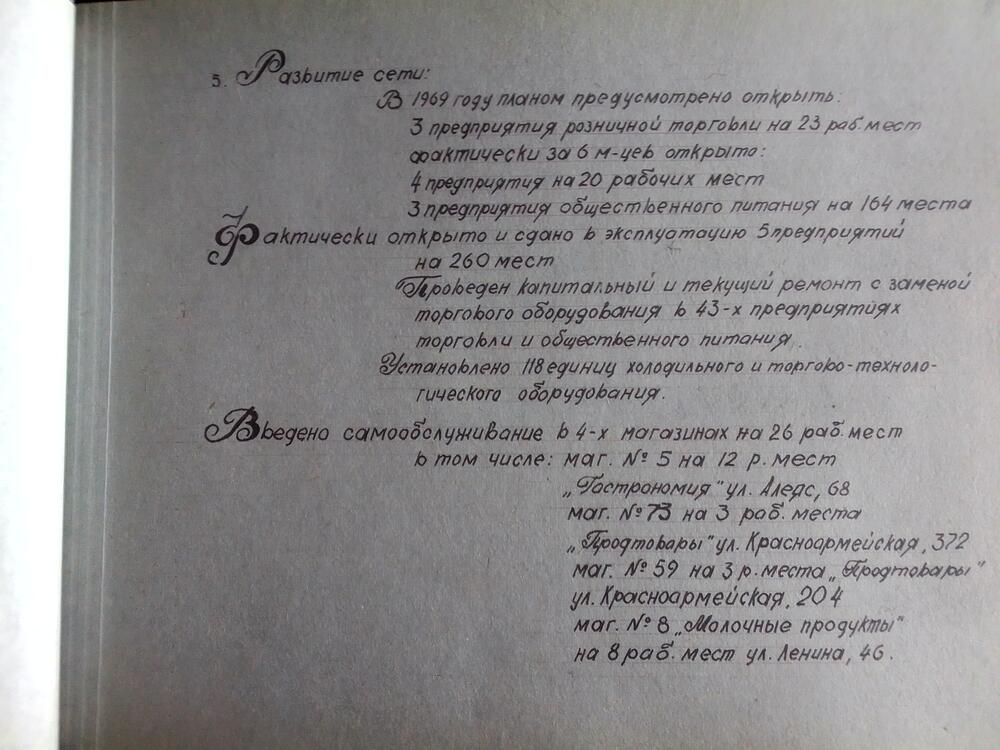 5. Развитие сети:
В 1969 году планом предусмотрено открыть:
3 предприятия розничной торговли на 23 раб. мест
фактически за 6 м-цев открыто:
4 предприятия на 20 рабочих мест
3 предприятия общественного питания на 164 места
Фактически открыто и сдано в эксплуатацию 5 предприятий
на 260 мест
Проведен капитальный и текущий ремонт с заменой
торгового оборудования в 43-х предприятиях
торговли и общественного питания.
Установлено 118 единиц холодильного и торгово-техноло-
гического оборудования.
Введено самообслуживание в 4-х магазинах на 26 раб. мест
в том числе: маг. № 5 на 12 р. мест
„Гастрономия" ул. Аледс, 68
маг. № 73 на 3 раб. места
„Продтовары" ул. Красноармейская, 372
маг. № 59 на 3 р. места „Продтовары"
ул. Красноармейская, 204
маг. № 8 „Молочные продукты"
на 8 раб. мест ул. Ленина, 46.